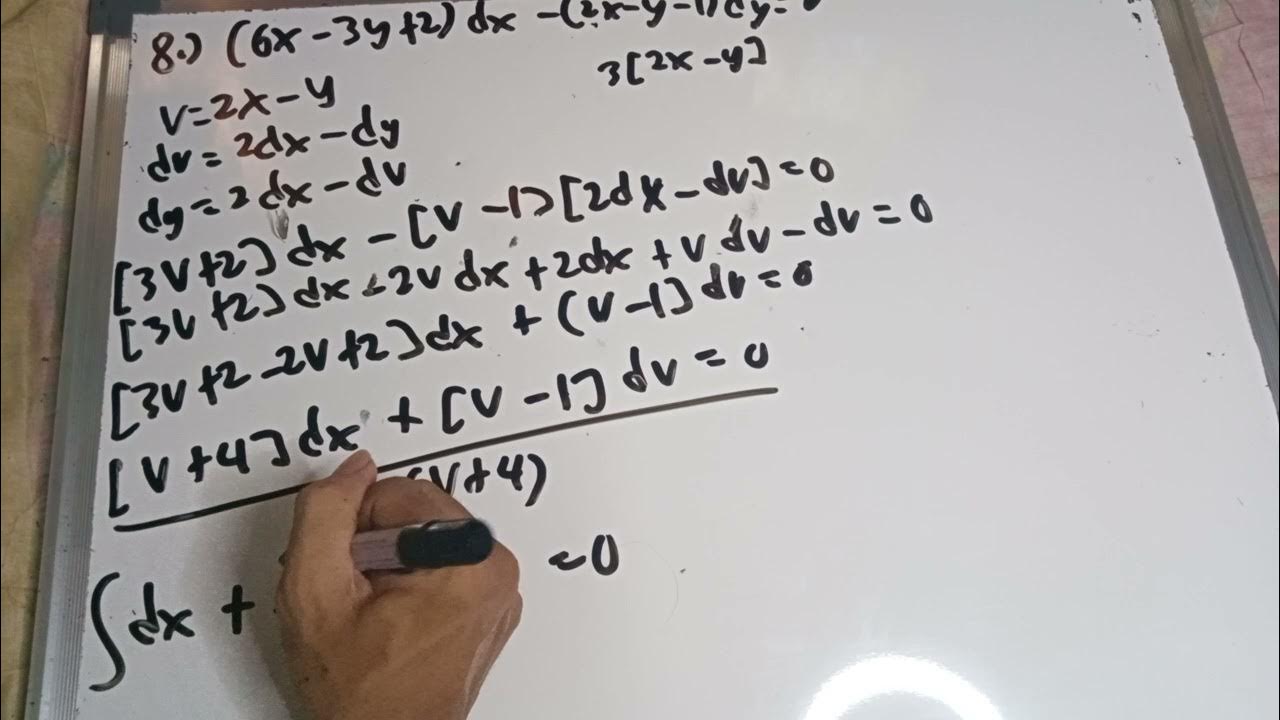 8.) (6x-3y+2)dx -(2x-y-1)dy=0
3[2x-y]
v=2x-y
dv=2dx-dy
dy=2dx-dv
[3v+2]dx-[v-1)[2dx-dv]=0
[3v+2]dx-2vdx+2dx+vdv-dv=0
[3v+2-2v+2]dx+(v-1]dv=0
[v+4]dx+[v-1]dv=0
(v+4)
∫dx+ =0